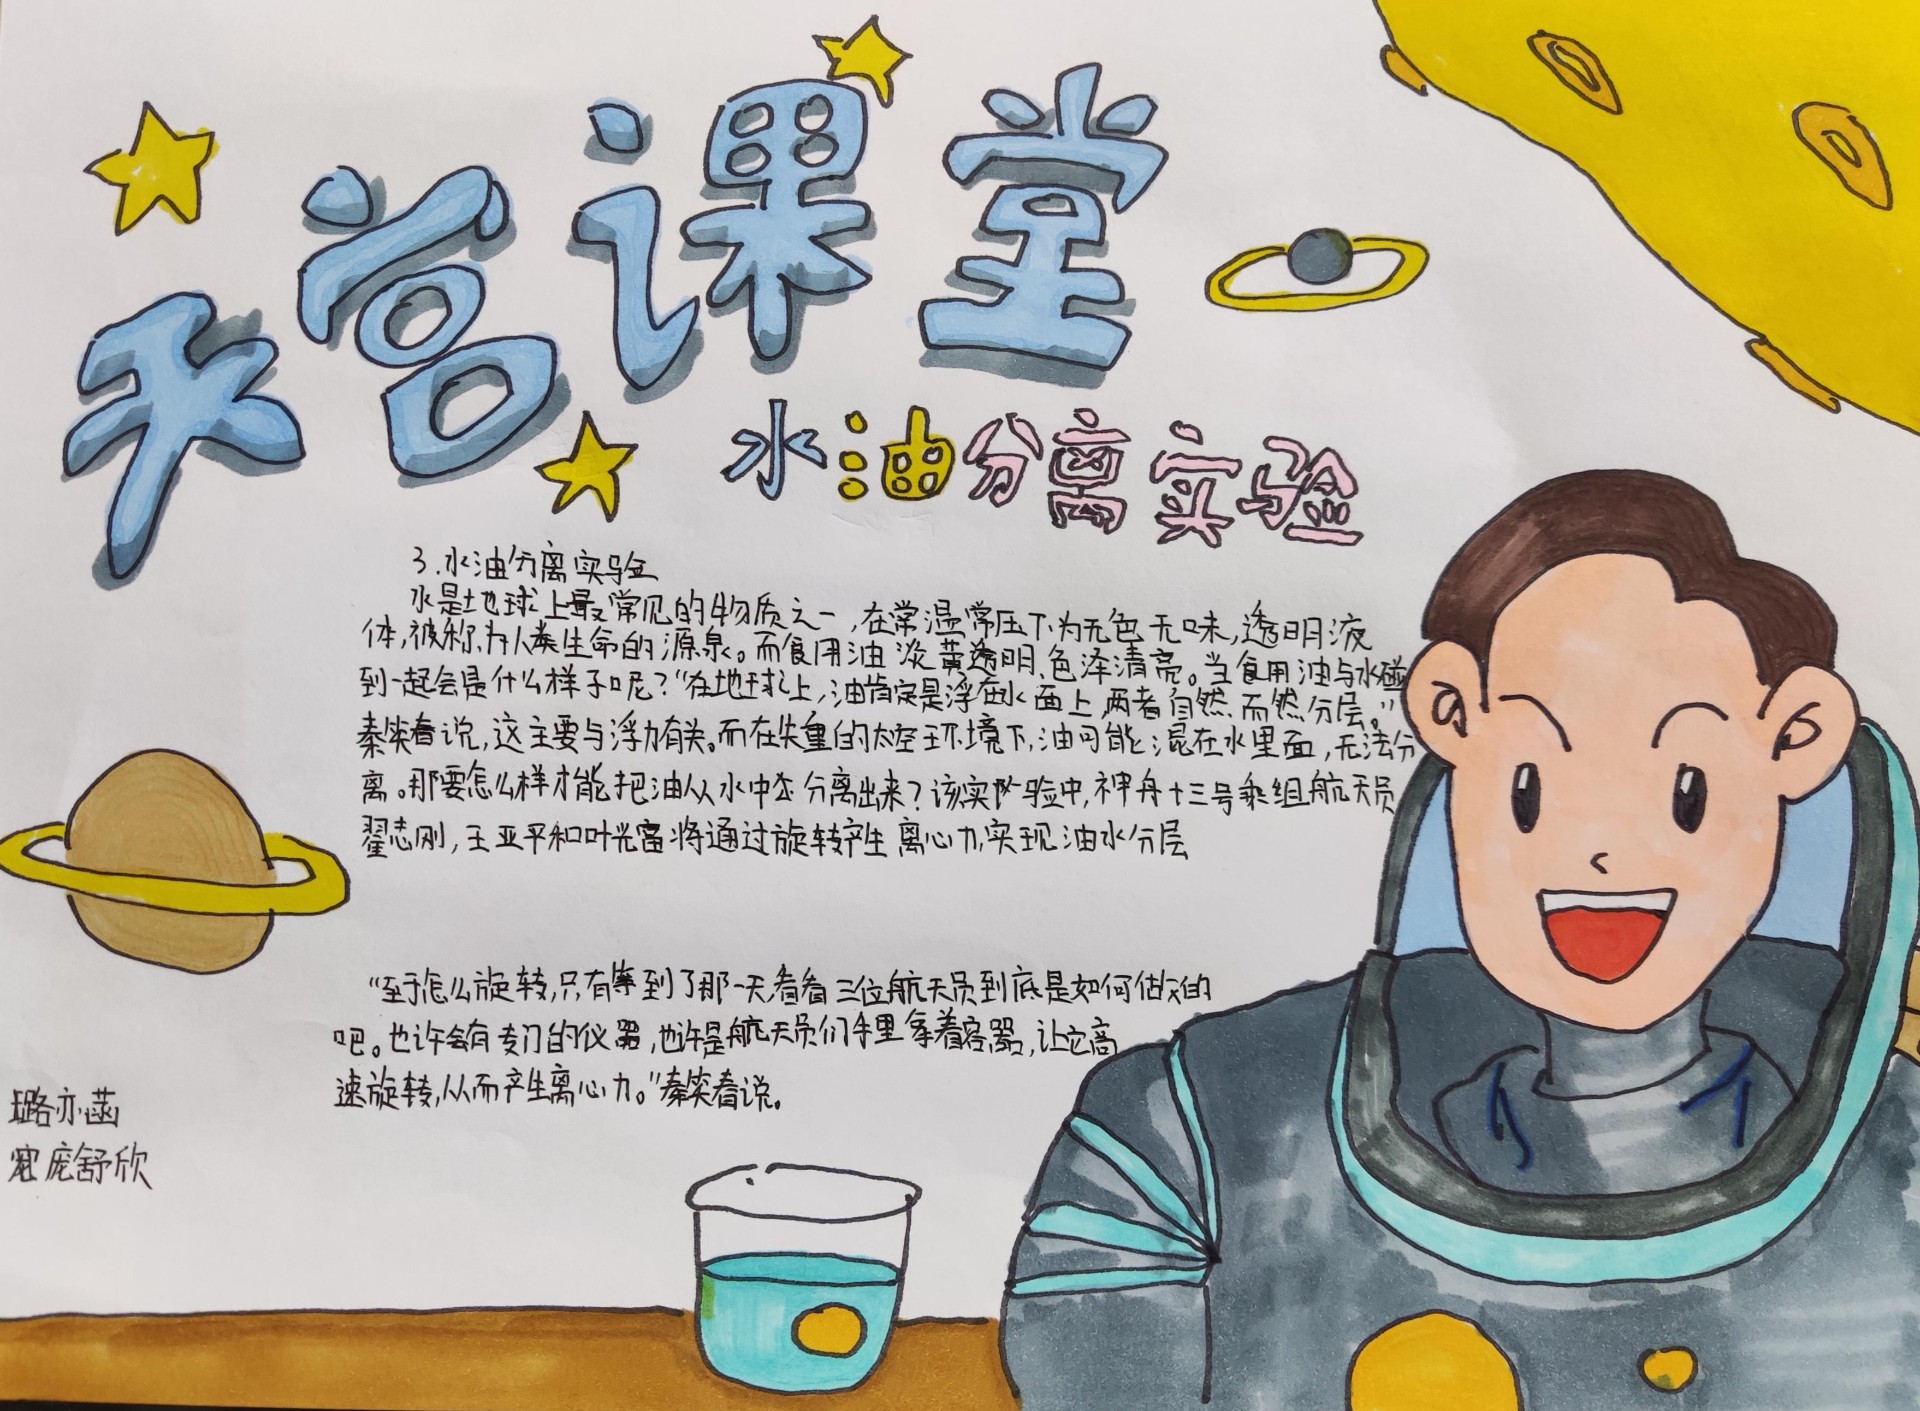 天宫课堂
水油分离实验
3.水油分离实验
水是地球上最常见的物质之一,在常温常压下为无色无味,透明液
体,被称为人类生命的源泉。而食用油淡黄透明、色泽清亮。当食用油与水碰
到一起会是什么样子呢?“在地球上,油肯定是浮在水面上,两者自然而然分层。”
秦笑春说,这主要与浮力有关。而在失重的太空环境下,油可能混在水里面,无法分
离。那要怎么样才能把油从水中分离出来?该实验中,神舟十三号乘组航天员
翟志刚,王亚平和叶光富将通过旋转产生离心力,实现油水分层
“至于怎么旋转,只有等到了那一天,看看三位航天员到底是如何做的
吧。也许会有专门的仪器,也许是航天员们手里拿着容器,让它高
速旋转,从而产生离心力。”秦笑春说。
璐亦菡
庞舒欣